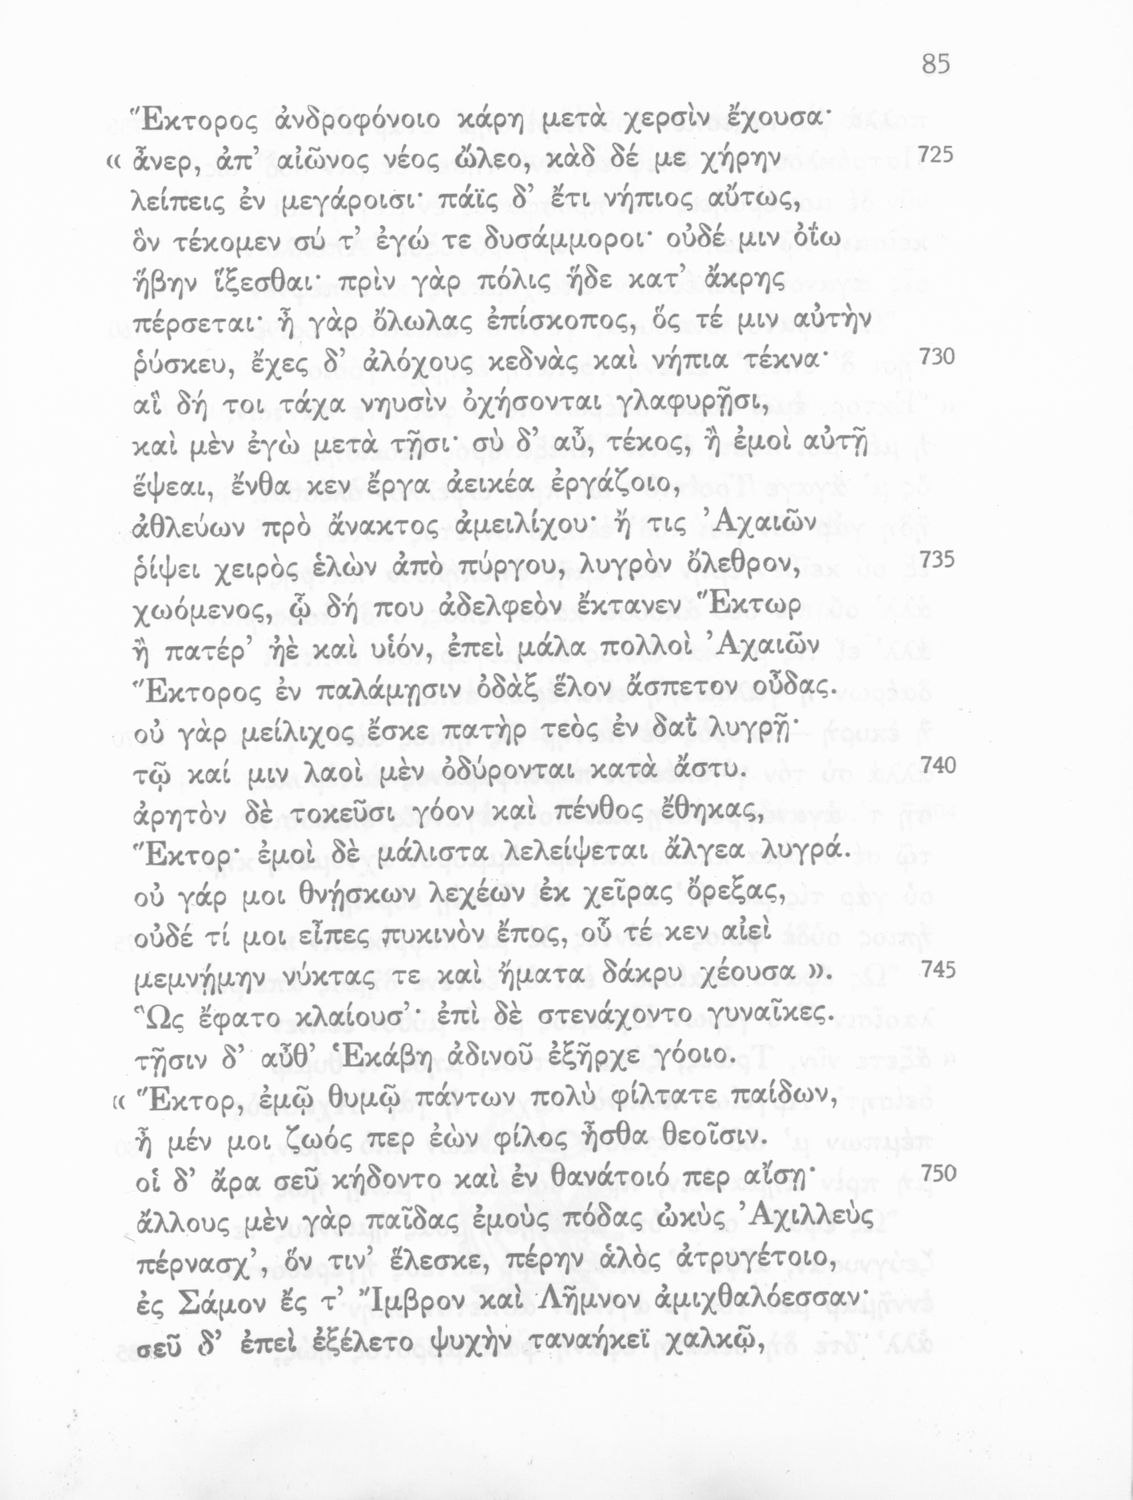 85
Ἕκτορος ἀνδροφόνοιο κάρη μετὰ χερσὶν ἔχουσα·
« ἆνερ, ἀπ’ αἰῶνος νέος ὤλεο, κὰδ δέ με χήρην 725
λείπεις ἐν μεγάροισι· πάϊς δ’ ἔτι νήπιος αὔτως,
ὃν τέκομεν σύ τ’ ἐγώ τε δυσάμμοροι· οὐδέ μιν ὀΐω
ἥβην ἵξεσθαι· πρὶν γὰρ πόλις ἥδε κατ’ ἄκρης
πέρσεται· ἦ γὰρ ὄλωλας ἐπίσκοπος, ὅς τέ μιν αὐτὴν
ῥύσκευ, ἔχες δ’ ἀλόχους κεδνὰς καὶ νήπια τέκνα· 730
αἳ δή τοι τάχα νηυσὶν ὀχήσονται γλαφυρῇσι,
καὶ μὲν ἐγὼ μετὰ τῇσι· σὺ δ’ αὖ, τέκος, ἢ ἐμοὶ αὐτῇ
ἕψεαι, ἔνθα κεν ἔργα ἀεικέα ἐργάζοιο,
ἀθλεύων πρὸ ἄνακτος ἀμειλίχου· ἤ τις Ἀχαιῶν
ῥίψει χειρὸς ἑλὼν ἀπὸ πύργου, λυγρὸν ὄλεθρον, 735
χωόμενος, ᾧ δή που ἀδελφεὸν ἔκτανεν Ἕκτωρ
ἢ πατέρ’ ἠὲ καὶ υἱόν, ἐπεὶ μάλα πολλοὶ Ἀχαιῶν
Ἕκτορος ἐν παλάμῃσιν ὀδὰξ ἕλον ἄσπετον οὖδας.
οὐ γὰρ μείλιχος ἔσκε πατὴρ τεὸς ἐν δαῒ λυγρῇ·
τῷ καί μιν λαοὶ μὲν ὀδύρονται κατὰ ἄστυ. 740
ἀρητὸν δὲ τοκεῦσι γόον καὶ πένθος ἔθηκας,
Ἕκτορ· ἐμοὶ δὲ μάλιστα λελείψεται ἄλγεα λυγρά.
οὐ γάρ μοι θνῄσκων λεχέων ἐκ χεῖρας ὄρεξας,
οὐδέ τί μοι εἶπες πυκινὸν ἔπος, οὗ τέ κεν αἰεὶ
μεμνῄμην νύκτας τε καὶ ἤματα δάκρυ χέουσα ». 745
Ὣς ἔφατο κλαίουσ’· ἐπὶ δὲ στενάχοντο γυναῖκες.
τῇσιν δ’ αὖθ’ Ἑκάβη ἁδινοῦ ἐξῆρχε γόοιο.
« Ἕκτορ, ἐμῷ θυμῷ πάντων πολὺ φίλτατε παίδων,
ἦ μέν μοι ζωός περ ἐὼν φίλος ἦσθα θεοῖσιν.
οἱ δ’ ἄρα σεῦ κήδοντο καὶ ἐν θανάτοιό περ αἴσῃ· 750
ἄλλους μὲν γὰρ παῖδας ἐμοὺς πόδας ὠκὺς Ἀχιλλεὺς
πέρνασχ’, ὅν τιν’ ἕλεσκε, πέρην ἁλὸς ἀτρυγέτοιο,
ἐς Σάμον ἔς τ’ Ἴμβρον καὶ Λῆμνον ἀμιχθαλόεσσαν·
σεῦ δ’ ἐπεὶ ἐξέλετο ψυχὴν ταναήκεϊ χαλκῷ,